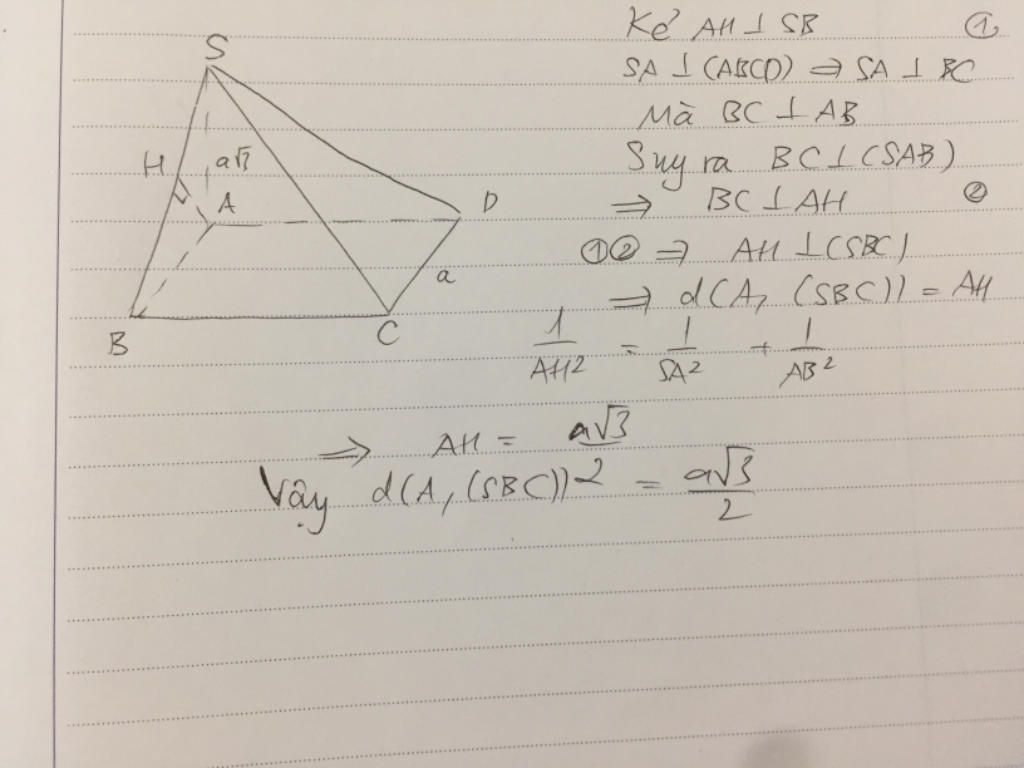 S
H
a√3
A
D
a
B
C
Kẻ AH ⊥ SB ①
SA ⊥ (ABCD) ⇒ SA ⊥ BC
Mà BC ⊥ AB
Suy ra BC ⊥ (SAB)
⇒ BC ⊥ AH ②
①② ⇒ AH ⊥ (SBC)
⇒ d(A, (SBC)) = AH
1/AH² = 1/SA² + 1/AB²
⇒ AH = a√3/2
Vậy d(A, (SBC)) = a√3/2